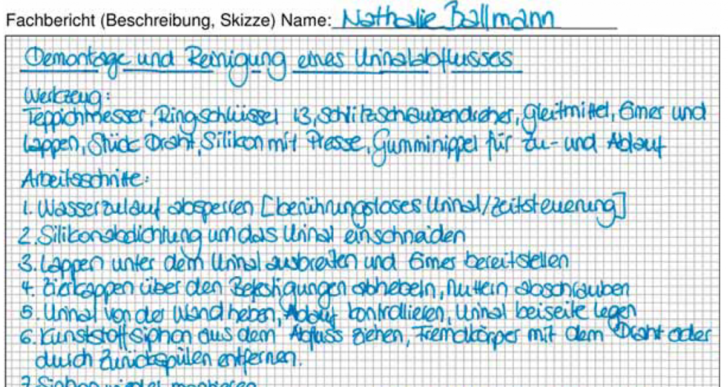 Fachbericht (Beschreibung, Skizze) Name: Nathalie Ballmann
Demontage und Reinigung eines Urinalabflusses
Werkzeug:
Teppichmesser, Ringschlüssel 13, Schlitzschraubendreher, Gleitmittel, Eimer und
Lappen, Stück Draht, Silikon mit Presse, Gumminippel für Zu- und Ablauf
Arbeitsschritte:
1. Wasserzulauf absperren [berührungsloses Urinal/Zeitsteuerung]
2. Silikonabdichtung um das Urinal einschneiden
3. Lappen unter dem Urinal ausbreiten und Eimer bereitstellen
4. Zierkappen über den Befestigungen abhebeln, Muttern abschrauben
5. Urinal von der Wand heben, Ablauf kontrollieren, Urinal beiseite legen
6. Kunststoffsiphon aus dem Abfluss ziehen, Fremdkörper mit dem Draht oder
durch Zurückspülen entfernen.
7. Siphon wieder montieren